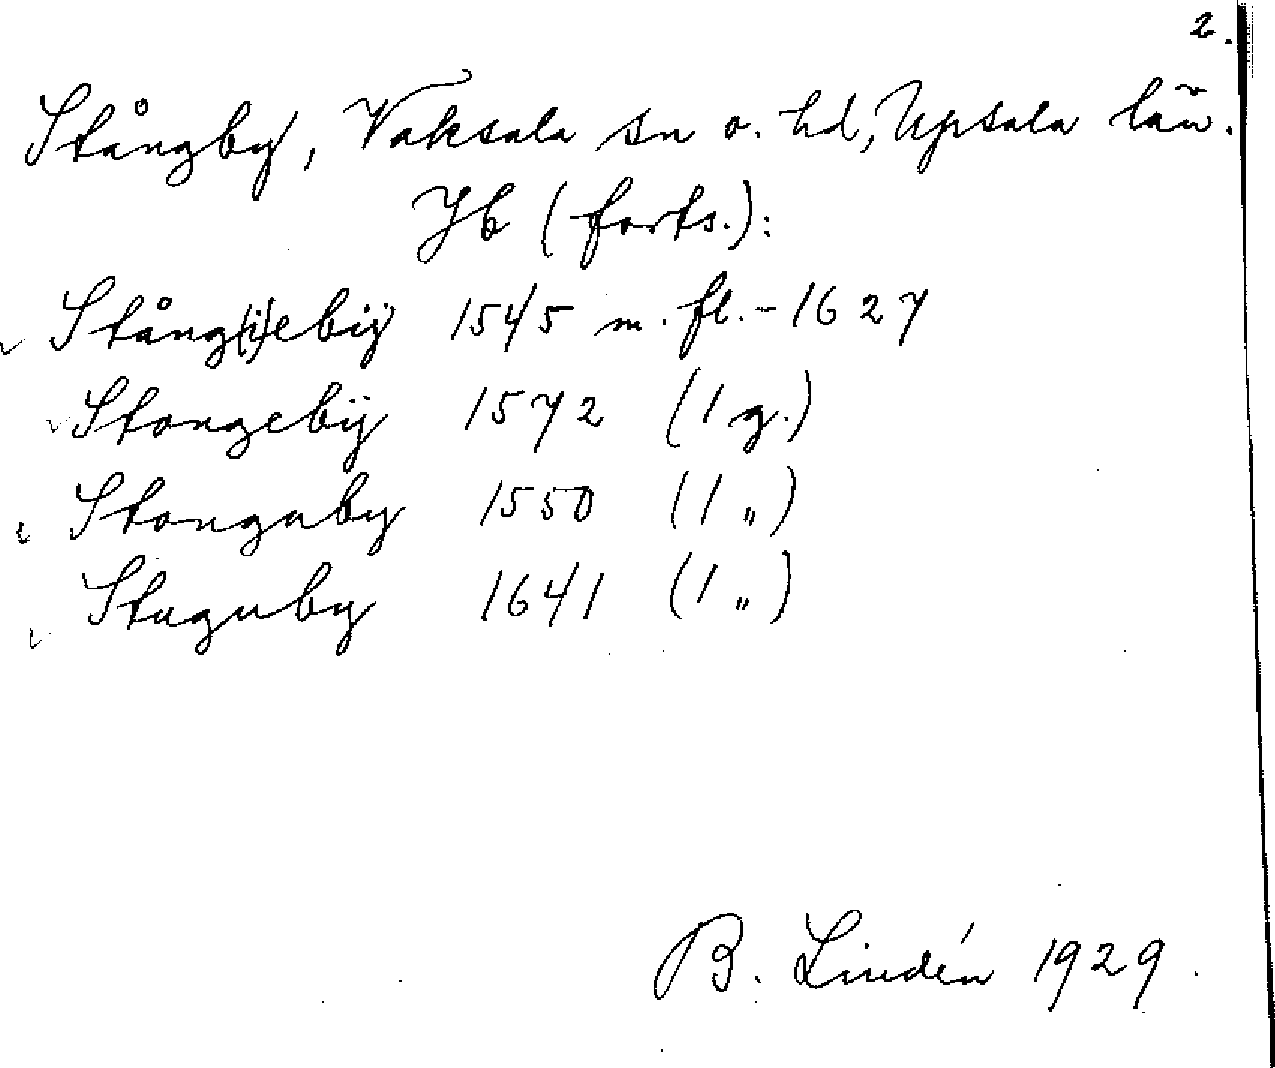 2.
Stångby, Vaksala sn o. hd, Upsala län.
Jb (forts.):
Stång(i)ebÿ 1545 m. fl. - 1627
Stongebÿ 1572 (1 g.)
Stongaby 1550 (1 „)
Stuguby 1641 (1 „)
B. Lindén 1929.